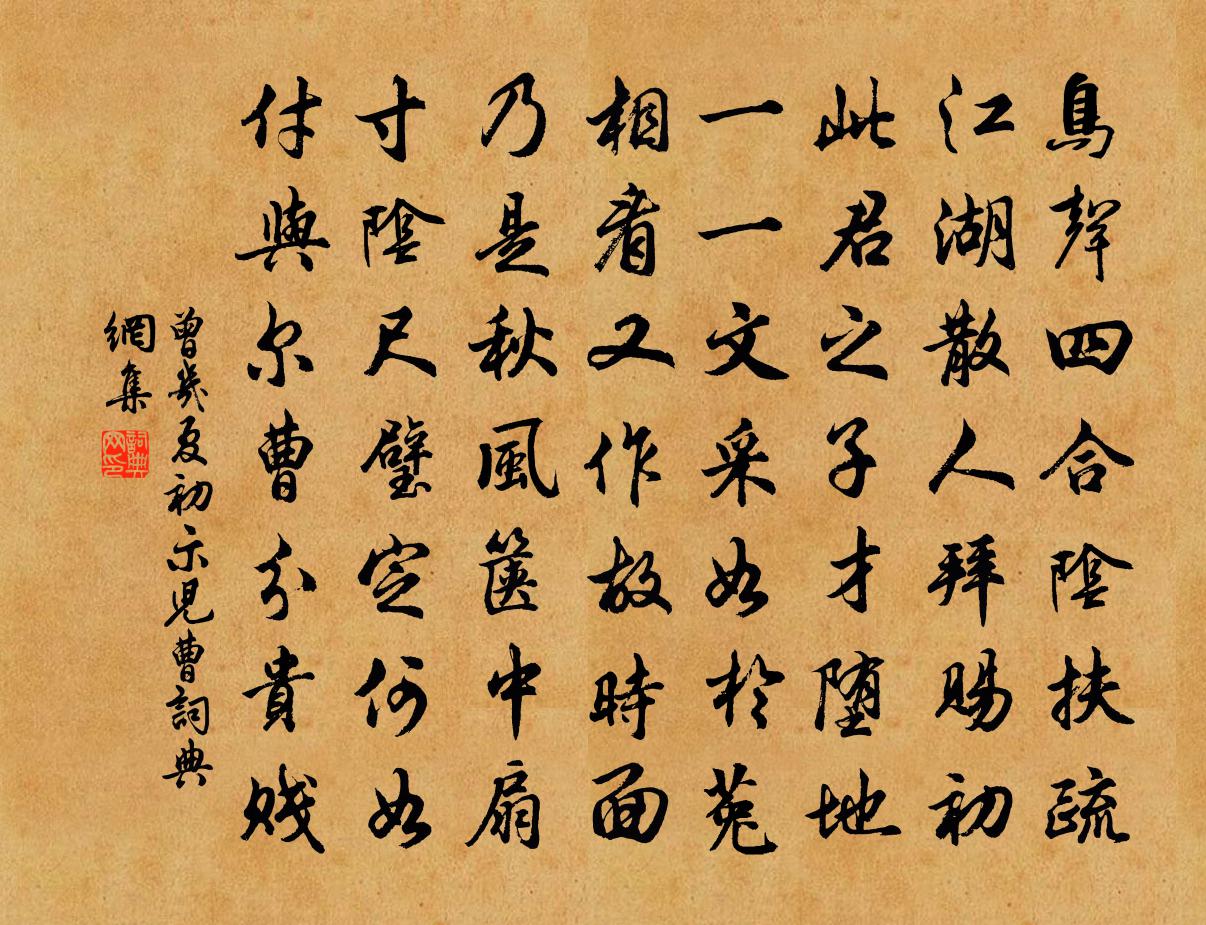 鳥聲四合陰扶疏
江湖散人拜賜初
此君之子才墮地
一一文采如於菟
相看又作故時面
乃是秋風篋中扇
寸陰尺璧定何如
付與尔曹分貴賤
曾幾夏初示兒曹詞典
網集
詞典網印